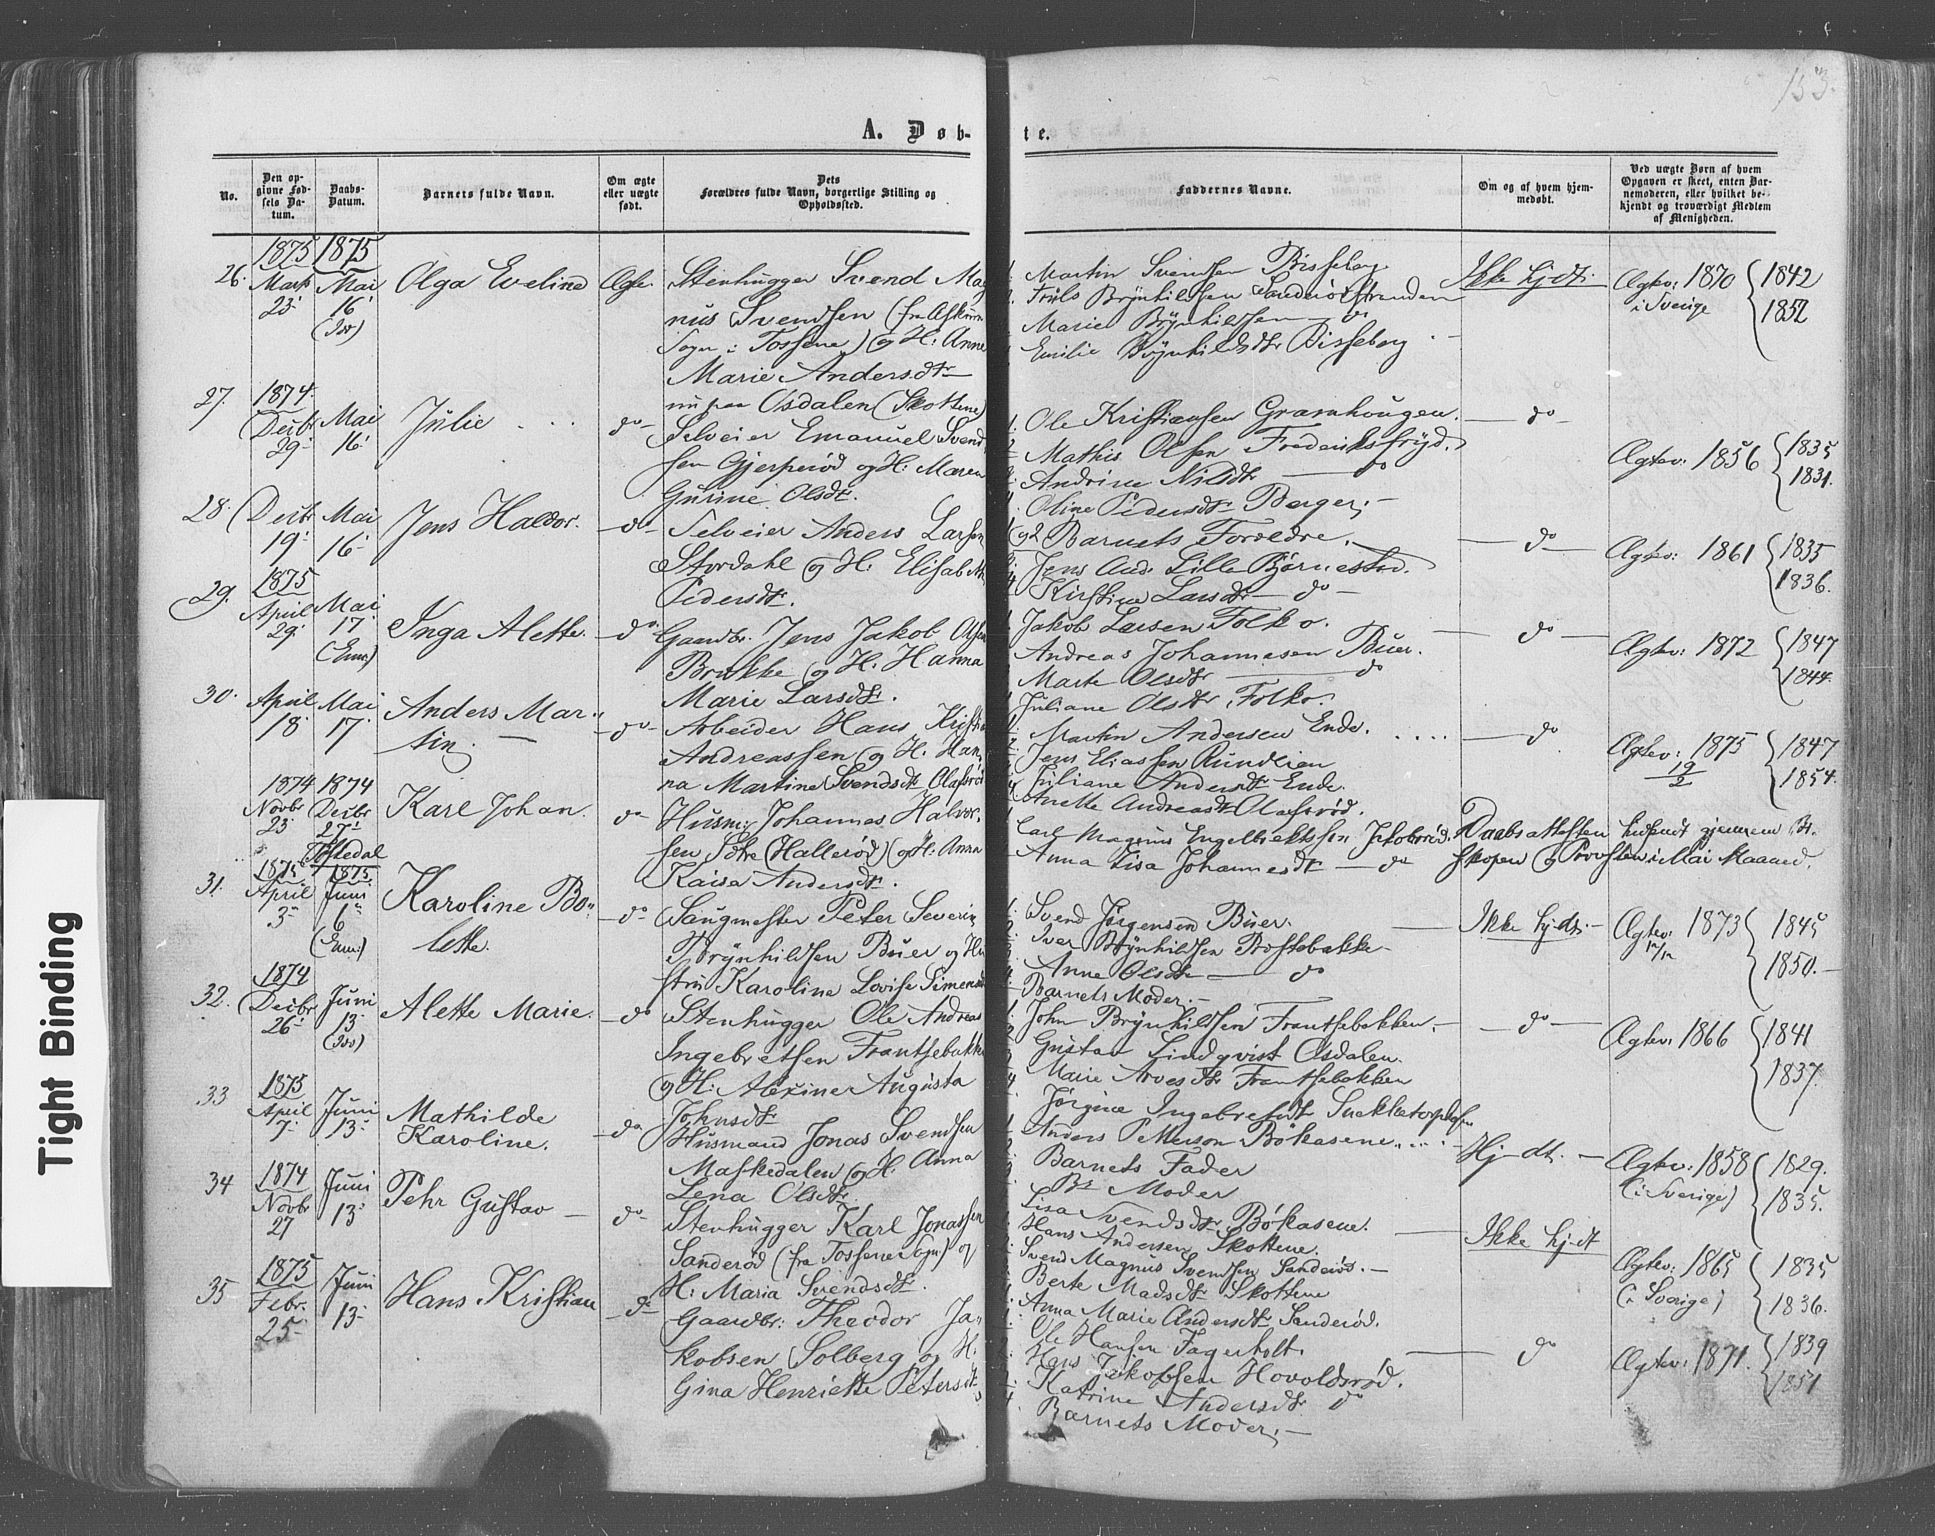 153.
A. Døb-
te.
No.
Den op-
givne Fød-
sels Da-
tum.
Daabs-
Datum.
Barnets fulde Navn.
Om ægte
eller uægte
født.
Dets
Forældres fulde Navn, borgerlige Stilling og
Opholdssted.
Faddernes Navne.
Om og af hvem hjem-
medøbt.
Ved uægte Børn af hvem
Opgaven er skeet, enten Bar-
nemoderen, eller hvilket be-
kjendt og troværdigt Medlem
af Menigheden.
26.
1875
Marts
23.
1875
Mai
16.
(Iss)
Olga Eveline
Ægte.
Stenhugger Svend Mag
nus Svendsen (fra Askum
Sogn i Tossene) og H: Anne
Marie Andersdtr
nu paa Osdalen (Skottene)
Martin Svendsen Bisseberg
Truls Brynhildsen Sanderødstranden
Marie Brynhildsen do
Emilie Brynhildsdtr Bisseberg
Ikke hj-dt.
Ægtev: 1870
i Sverige
1842
1852
27.
1874.
Decbr
29.
Mai
16.
Julie
do
Selveier Emanuel Svend
sen Gjerperød og H: Maren
Gurine Olsdtr.
Ole Kristiansen Gramhougen.
Mathis Olsen Frederiksfryd.
Andrine Nilsdtr do
Oline Pedersdtr Berger.
do
Ægtev: 1856
1835
1831.
28.
Decbr
19.
Mai
16.
Jens Haldor.
do
Selveier Anders Larsen
Stordahl og H: Elisabeth
Pedersdtr.
1 og 2 Barnets Forældre.
Jens And: Lille Bjørnestad.
Kirstine Larsdtr do
do
Ægtev: 1861
1835
1836.
29.
1875
April
29.
Mai
17.
(Enn:)
Inga Alette.
do
Gaardbr. Jens Jakob Olsen
Brække og H: Hanna
Marie Larsdtr.
Jakob Larsen Folko.
Andreas Johannesen Buer.
Marte Olsdtr do
Juliane Olsdtr Folko.
do
Ægtev: 1872
1847
1844.
30.
April
18.
Mai
17.
Anders Mar-
tin.
do
Arbeider Hans Kristian
Andreassen og H: Han
na Martine Svendsdtr Olafsrød
Martin Andersen Ende.
Jens Eliassen
Juliane Andersdtr Ende.
Anette Andreasdtr Olafsrød.
do
Ægtev: 1875
19/2
1847
1854.
1874
Novbr
23
1874
Decbr
27
Karl Johan.
do
Husm: Johannes Halvor
sen (Hallerød) og H: Anna
Kaisa Andersdtr.
Carl Magnus Engelbrektssen Jakobsrød.
Anna Lisa Johannesdtr do
Daabsattesten indsendt gjennem Bi-
skopen og Provsten i Mai Maaned.
31.
1875
April
3.
1875
Juni
6.
(Enn:)
Karoline Bo-
lette.
do
Saugmester Peter Severin
Brynhildsen Buer og Hu
stru Karoline Lovise Simensd
Svend Jørgensen Buer.
Iver Brynhildsen Prestebakke
Anne Olsdtr do
Barnets Moder.
Ikke hj-dt.
Ægtev: 1873
1845
1850.
32.
1874
Decbr
26.
Juni
13.
(Iss)
Alette Marie.
do
Stenhugger Ole Andreas
Ingebretsen Frantsebakke
og H: Alexine Augusta
Johnsdtr
John Brynhildsen Frantsebakken.
Gustav Lindqvist Osdalen.
Marie Arvesdtr Frantsebakken
Jørgine Ingebretsdtr
do
Ægtev: 1866
1841
1837.
33
1875
April
7.
Juni
13.
Mathilde
Karoline.
do
Husmand Jonas Svendsen
Maskedalen og H: Anna
Lena Olsdtr
Anders Petterson Bökasene
Barnets Fader
Bs Moder
Lisa Svendsdtr Bökasene.
Hj-dt.
Ægtev: 1858
(i Sverige)
1829.
1835.
34
1874
Novbr
27
Juni
13.
Pehr Gustav
do
Stenhugger Karl Jonassen
Sanderød (fra Tossene Sogn) og
H: Maria Svendsdtr.
Hans Andersen Skottene.
Svend Magnus Svendsen Sanderød.
Berte Madsdtr Skottene
Anna Marie Andersdtr Sanderød.
Ikke hj-dt
Ægtev: 1865
(i Sverige)
1835
1836.
35
1875
Febr.
25.
Juni
13.
Hans Kristian
do
Gaardbr: Theodor Ja-
kobsen Solberg og H:
Gina Henriette Petersdtr
Ole Hansen Fagerholt.
Hans Jakobsen Hovoldsrød.
Katrine Andersdtr do
Barnets Moder.
do
Ægtev: 1871.
1839
1851
Tight Binding